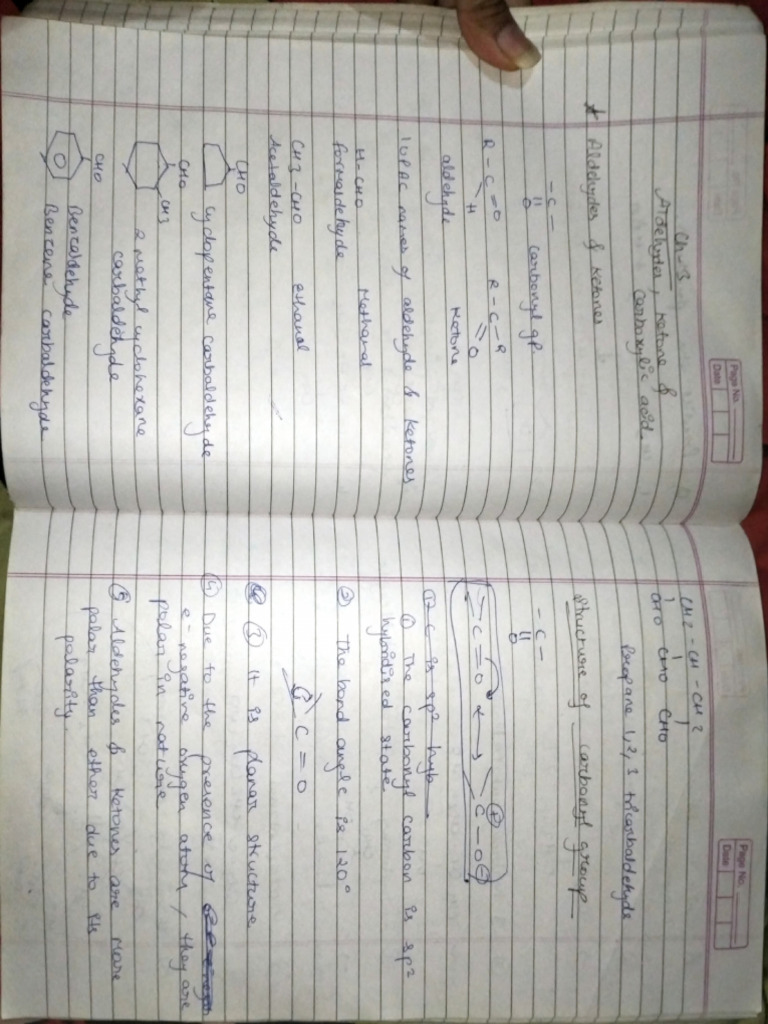 Page No.
Date
Ch-3
Aldehydes, Ketone &
carboxylic acid
* Aldehydes & Ketones
-C-
||
O
carbonyl gp.
R-C=O
H
R-C-R
O
aldehyde Ketone
IUPAC names of aldehyde & ketones
H-CHO Methanal
formaldehyde
CH3-CHO ethanal
Acetaldehyde
CHO
Cyclopentane carbaldehyde
CHO
CH3
2 methyl cyclohexane
carbaldehyde
CHO
Benzaldehyde
Benzene carbaldehyde
Page No.
Date
CH2-CH-CH2
CHO CHO CHO
Propane 1,2,3 tricarbaldehyde
Structure of carbonyl group
-C-
||
O
C=O ↔ C-O
+
-
C is sp2 hyb
① The carbonyl carbon is sp2
hybridized state
② The bond angle is 120°
C=O
③ It is planar structure
④ Due to the presence of
e- negative oxygen atom, they are
polar in nature
⑤ Aldehydes & ketones are more
polar than ether due to its
polarity.